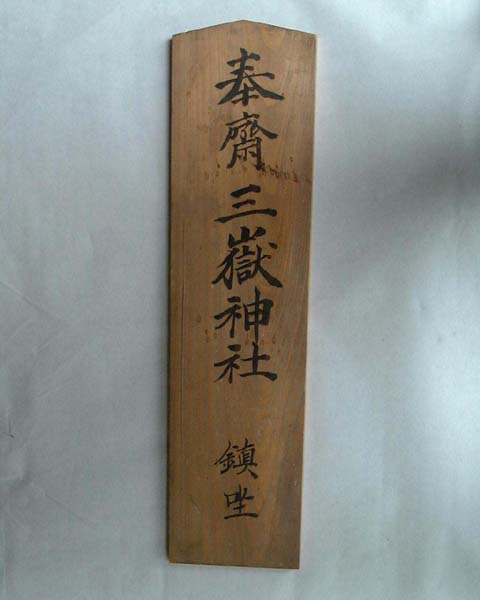 奉齋三嶽神社 鎮坐